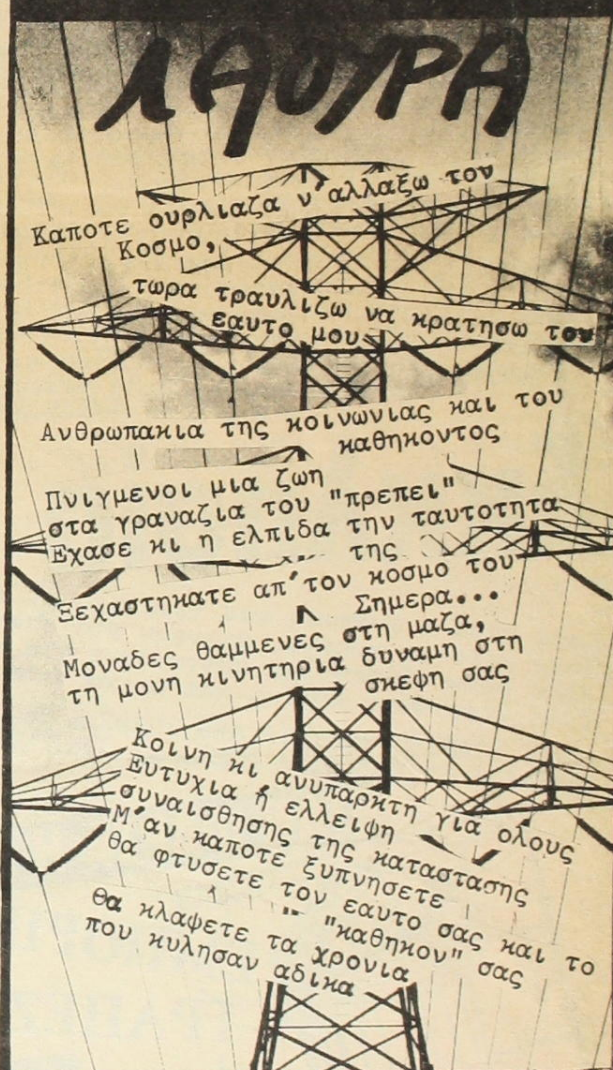 ΛΑΟΥΡΑ
Καποτε ουρλιαζα ν'αλλαξω τον
Κοσμο,
τωρα τραυλιζω να κρατησω τον
εαυτο μου
Ανθρωπακια της κοινωνιας και του
καθηκοντος
Πνιγμενοι μια ζωη
στα γραναζια του "πρεπει"
Εχασε κι η ελπιδα την ταυτοτητα
της
Ξεχαστηκατε απ'τον κοσμο του
Σημερα...
Μοναδες θαμμενες στη μαζα,
τη μονη κινητηρια δυναμη στη
σκεψη σας
Κοινη κι ανυπαρκτη για ολους
Ευτυχια ή ελλειψη
συναισθησης της καταστασης
Μ'αν καποτε ξυπνησετε
θα φτυσετε τον εαυτο σας και το
"καθηκον" σας
θα κλαψετε τα χρονια
που κυλησαν αδικα